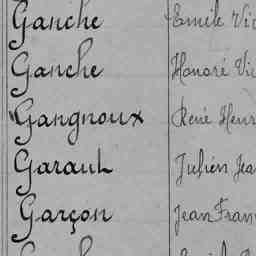 Ganche Emile Vic
Ganche Honoré Vic
Gangnoux René Henr
Garault Julien Jea
Garçon Jean Fran